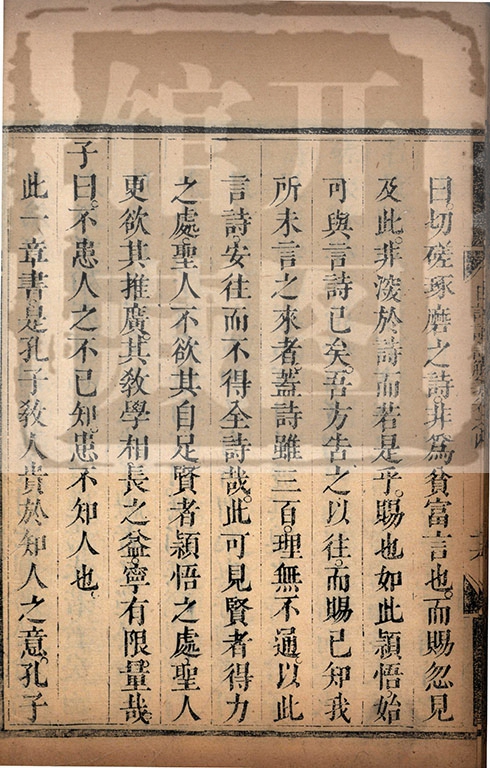 曰切磋琢磨之詩非為貧富言也而賜忽見
及此非淩於詩而若是乎賜也如此頴悟始
可與言詩已矣吾方告之以往而賜已知我
所未言之來者蓋詩雖三百理無不通以此
言詩安往而不得全詩哉此可見賢者得力
之處聖人不欲其自足賢者頴悟之處聖人
更欲其推廣其敎學相長之益寧有限量哉
子曰不患人之不己知患不知人也
此一章書是孔子敎人貴於知人之意孔子